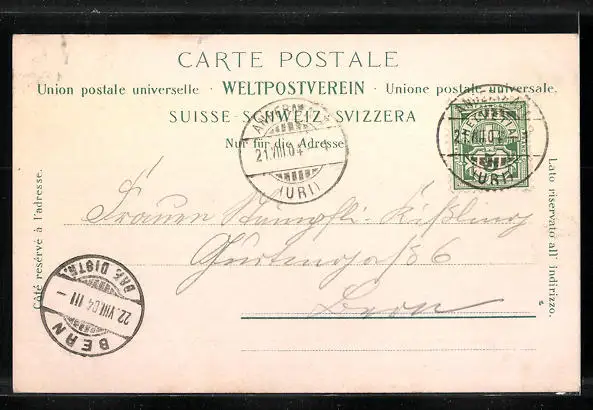 CARTE POSTALE
Union postale universelle · WELTPOSTVEREIN · Unione postale universale.
SUISSE · SCHWEIZ · SVIZZERA
Nur für die Adresse
Côté réservé à l'adresse.
Lato riservato all'indirizzo.
ANDERMATT
21.VIII.04
(URI)
ANDERMATT
21.VIII.04
(URI)
HELVETIA
5
Frauen Stampfli-Kißling
6
Bern
BERN
22.VIII.04 III –
BRF. DISTR.